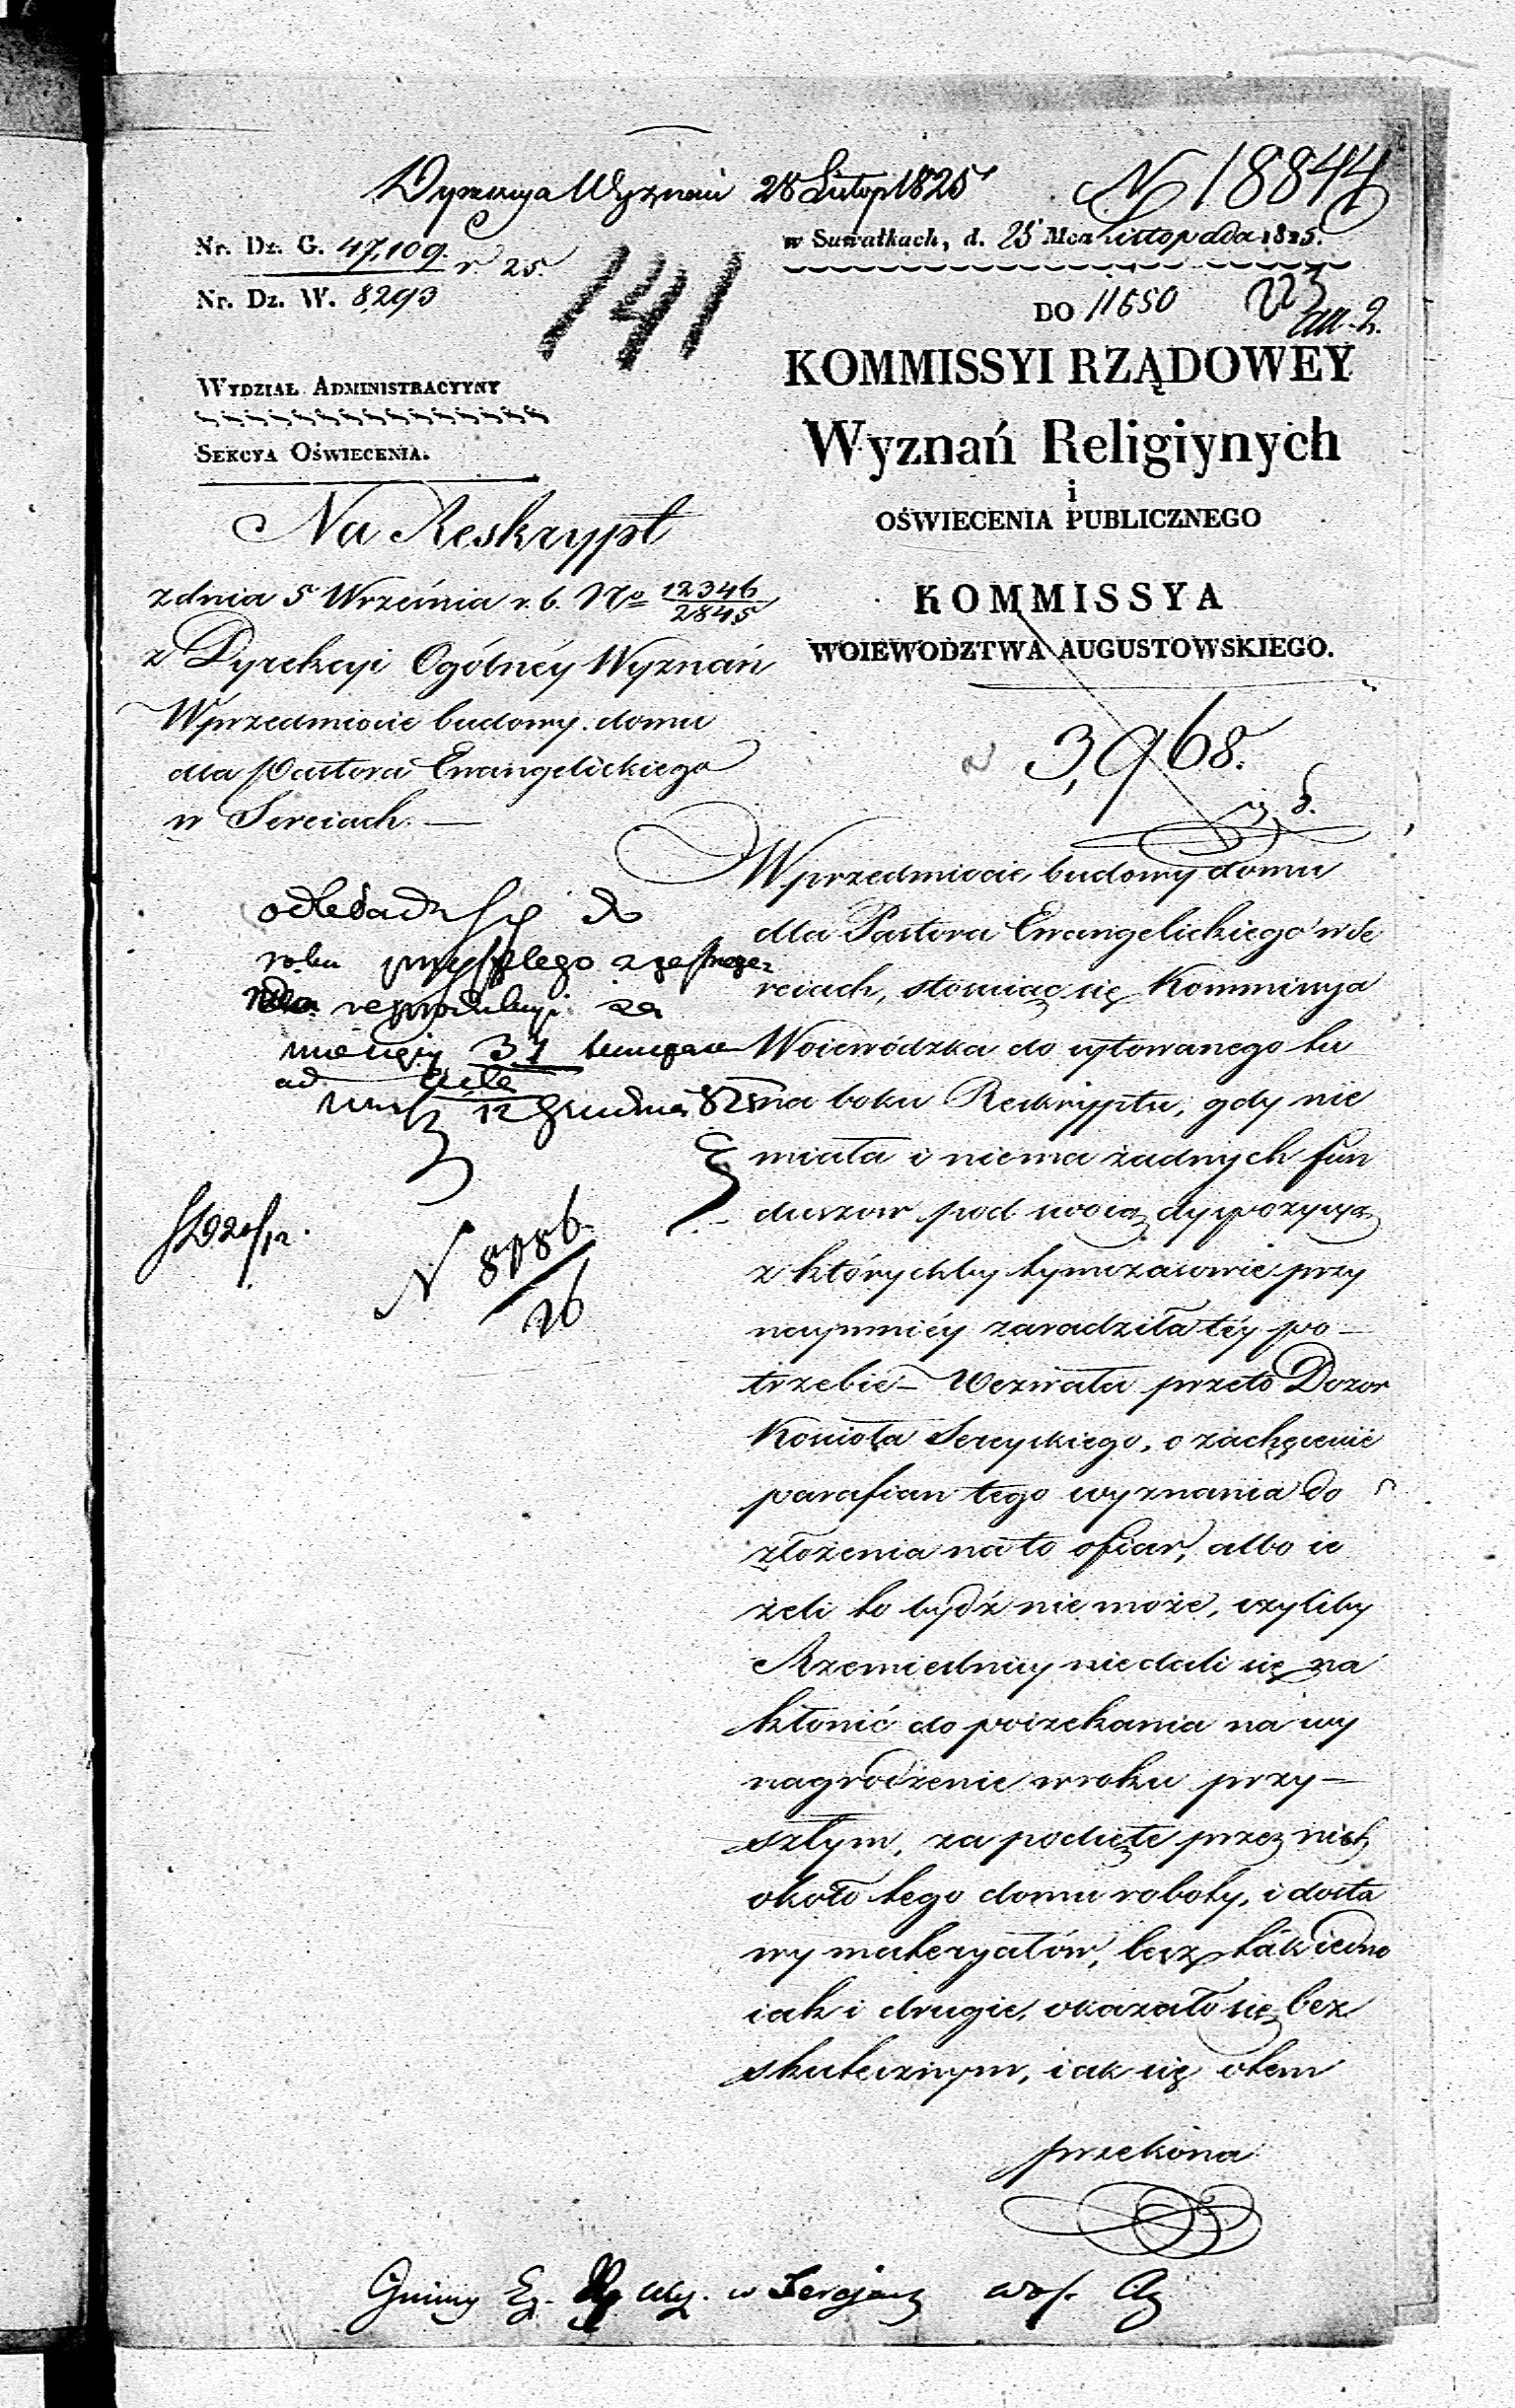 Dyrekcya Wyznań 28 Listop 1825
N 18844
Nr. Dz. G. 47,109. r. 25.
Nr. Dz. W. 8293
141
w Suwałkach, d. 25 Mca Listopada 1825.
DO 11650
223
WYDZIAŁ ADMINISTRACYYNY
SEKCYA OŚWIECENIA.
KOMMISSYI RZĄDOWEY
Wyznań Religiynych
i
OŚWIECENIA PUBLICZNEGO
KOMMISSYA
WOIEWODZTWA AUGUSTOWSKIEGO.
Na Reskrypt
z dnia 5 Września r. b. No 12346/2845
z Dyrekcyi Ogólnéy Wyznań
W przedmiocie budowy domu
dla Pastora Ewangelickiego
w Sereiach. —
3,968.
odkłada się do
roku przyszłego
reprodukcyi za
miesięcy 3
12 Grudnia 825
N 8086/26
W przedmiocie budowy domu
dla Pastora Ewangelickiego w Se
reiach, stosuiąc się Kommissya
Woiewódzka do cytowanego tu
na boku Reskryptu, gdy nie
miała i niema żadnych fun
duszow pod swoią dyspozycyą
z którychby tymczasowie przy
naymniéy zaradziła téy po—
trzebie — Wezwała przeto Dozor
Kościoła Sereyskiego, o zachęcenie
parafian tego wyznania do
złożenia na to ofiar, albo ie
żeli to bydź nie może, czyliby
Rzemieślnicy nie dali się na
kłonić do poczekania na wy
nagrodzenie w roku przy—
szłym, za podięte przez nich
około tego domu roboty, i dosta
wy materyałów, lecz tak iedno
iak i drugie, okazało się bez
skutecznym, iak się o tem
przekona
Gminy Ew. w Serejach woj. Aug